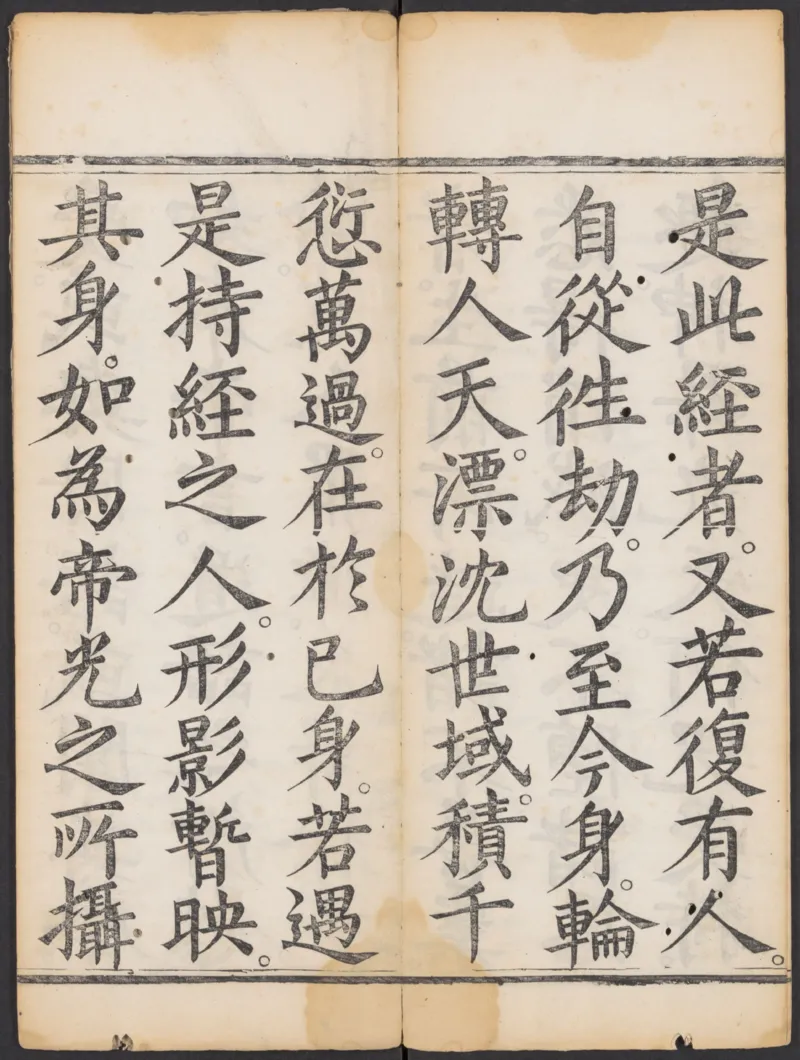 是此経者。又若復有人。
自從徃劫。乃至今身。輪
轉人天。漂沈世域。積千
愆萬過。在於已身。若遇
是持経之人。形影暫映。
其身。如為帝光之所攝